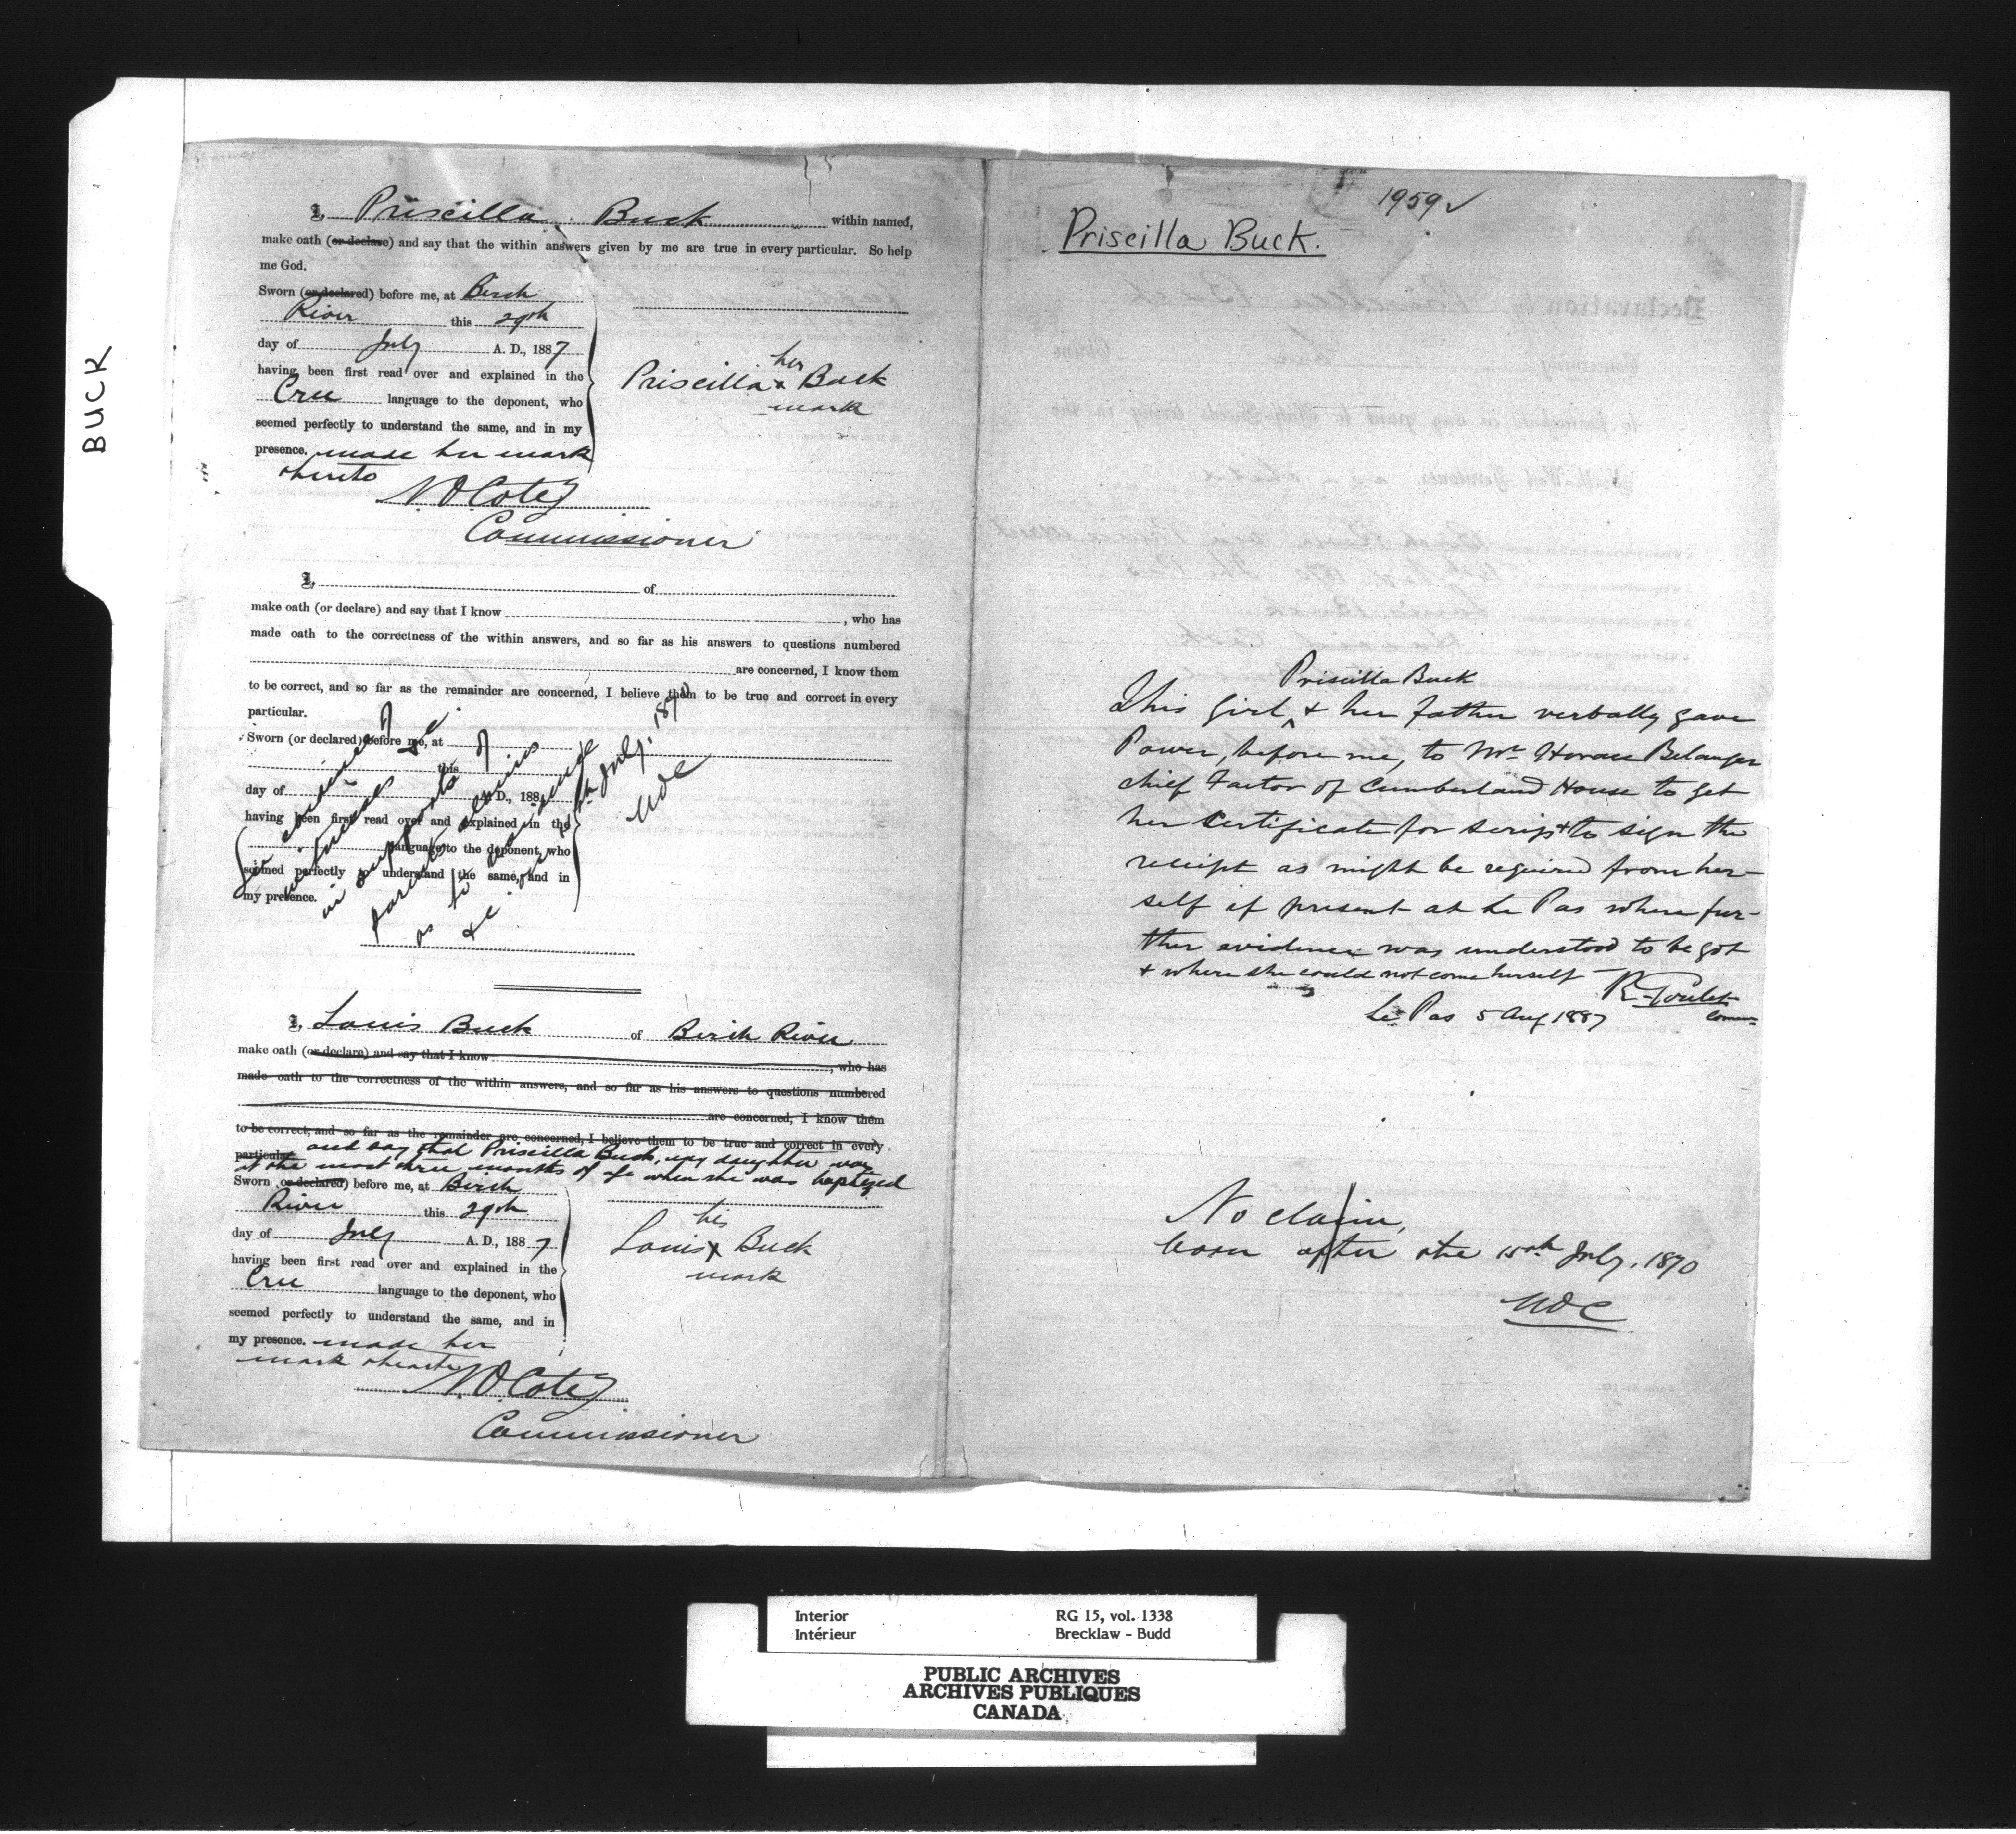 BUCK
I, Priscilla Buck within named,
make oath (or declare) and say that the within answers given by me are true in every particular. So help
me God.
Sworn (or declared) before me, at Birch
River this 29th
day of July A. D., 1887
having been first read over and explained in the
Cree language to the deponent, who
seemed perfectly to understand the same, and in my
presence. made her mark
thereto
her
Priscilla x Buck
mark
N. O. Coté
Commissioner
I, of
make oath (or declare) and say that I know , who has
made oath to the correctness of the within answers, and so far as his answers to questions numbered
are concerned, I know them
to be correct, and so far as the remainder are concerned, I believe them to be true and correct in every
particular.
Sworn (or declared) before me, at
this
day of A. D., 188
having been first read over and explained in the
language to the deponent, who
seemed perfectly to understand the same, and in
my presence.
evidence of
&c.
in support of
parents claims
as to
&c. July, 1870
NOC
I, Louis Buck of Birch River
make oath (or declare) and say that I know , who has
made oath to the correctness of the within answers, and so far as his answers to questions numbered
are concerned, I know them
to be correct, and so far as the remainder are concerned, I believe them to be true and correct in every
particular. and say that Priscilla Buck, my daughter was
at the most three months of age when she was baptized
Sworn (or declared) before me, at Birch
River this 29th
day of July A. D., 1887
having been first read over and explained in the
Cree language to the deponent, who
seemed perfectly to understand the same, and in
my presence. made her
mark thereto
his
Louis x Buck
mark
N. O. Coté
Commissioner
1959 ✓
Priscilla Buck.
Priscilla Buck
This girl ^ & her father verbally gave
Power, before me, to Mr Horace Belanger
chief Factor of Cumberland House to get
her certificate for scrip & to sign the
receipt as might be required from her-
self if present at Le Pas where fur-
ther evidence was understood to be got
& where she could not come herself
R. Goulet
Comm
Le Pas 5 Aug 1887
No claim,
born after the 15th July, 1870
NOC
Interior
Intérieur
RG 15, vol. 1338
Brecklaw - Budd
PUBLIC ARCHIVES
ARCHIVES PUBLIQUES
CANADA